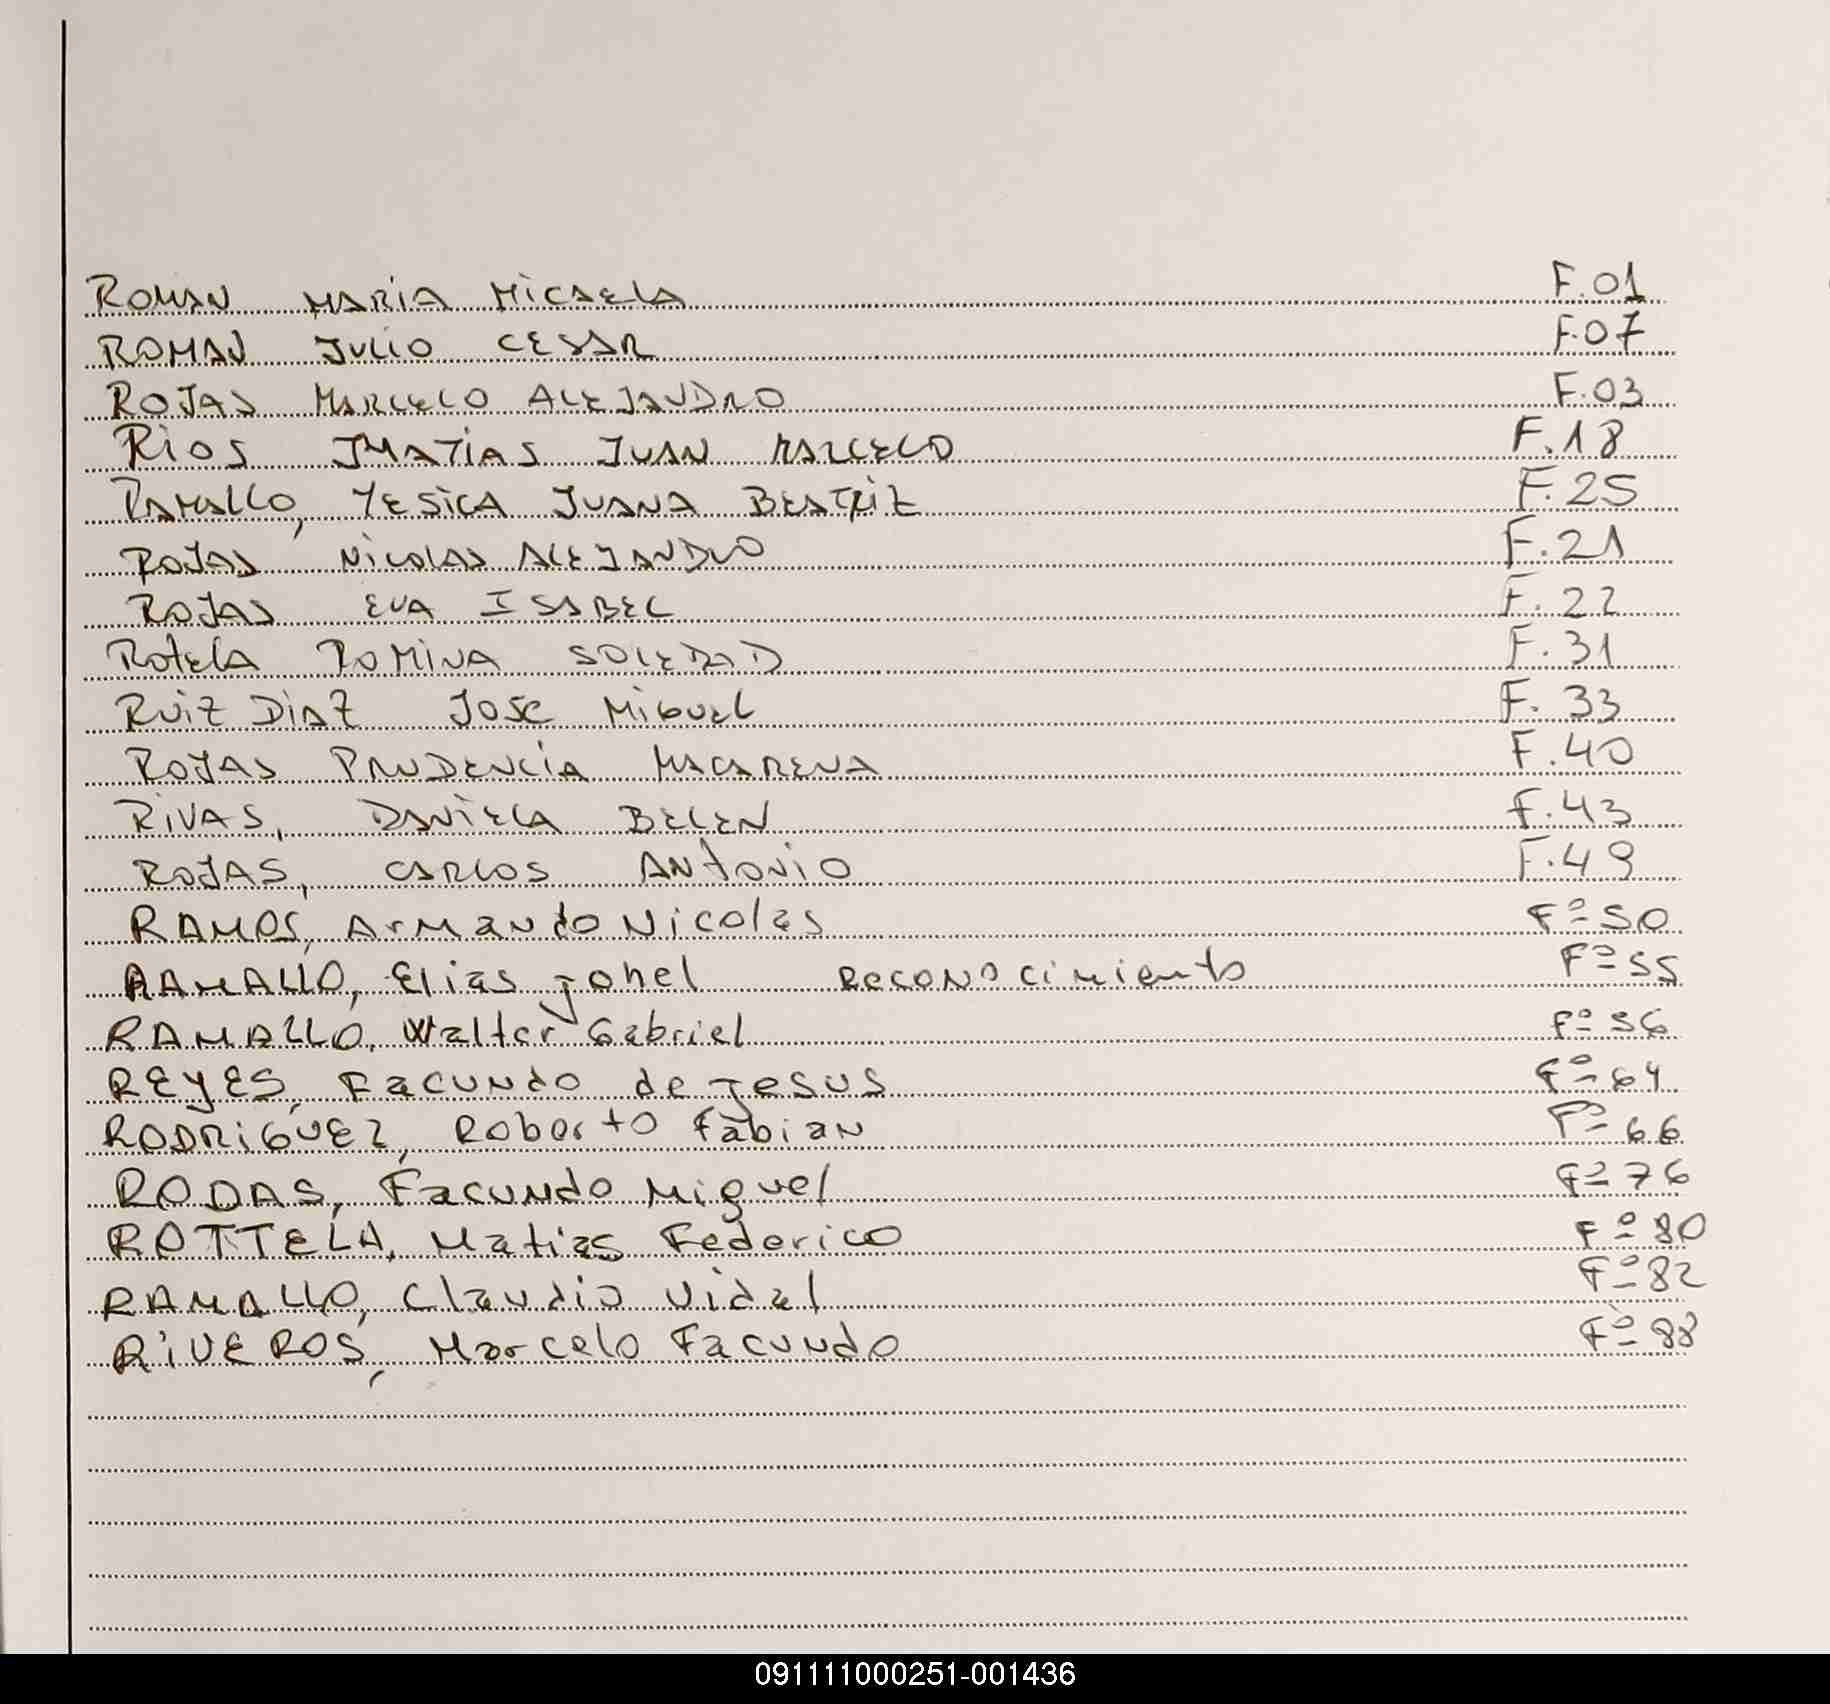 ROMAN MARIA MICAELA F.01
ROMAN JULIO CESAR F.07
ROJAS MARCELO ALEJANDRO F.03
RIOS JMATIAS JUAN MARCELO F.18
RAMALLO, YESICA JUANA BEATRIZ F.25
ROJAS NICOLAS ALEJANDRO F.21
ROJAS EVA ISABEL F.22
Rotela ROMINA SOLEDAD F.31
RUIZ DIAZ JOSE MIGUEL F.33
ROJAS PRUDENCIA MACARENA F.40
RIVAS, DANIELA BELEN F.43
ROJAS, CARLOS ANTONIO F.49
RAMOS, Armando Nicolas Fº 50
RAMALLO, Elias Johel Reconocimiento Fº 55
RAMALLO, Walter Gabriel Fº 56
REYES, Facundo de Jesus Fº 64
RODRIGUEZ, Roberto Fabian Fº 66
RODAS, Facundo Miguel Fº 76
ROTTELA, Matias Federico Fº 80
RAMALLO, Claudio Vidal Fº 82
RIVEROS, Marcelo Facundo Fº 88
091111000251-001436